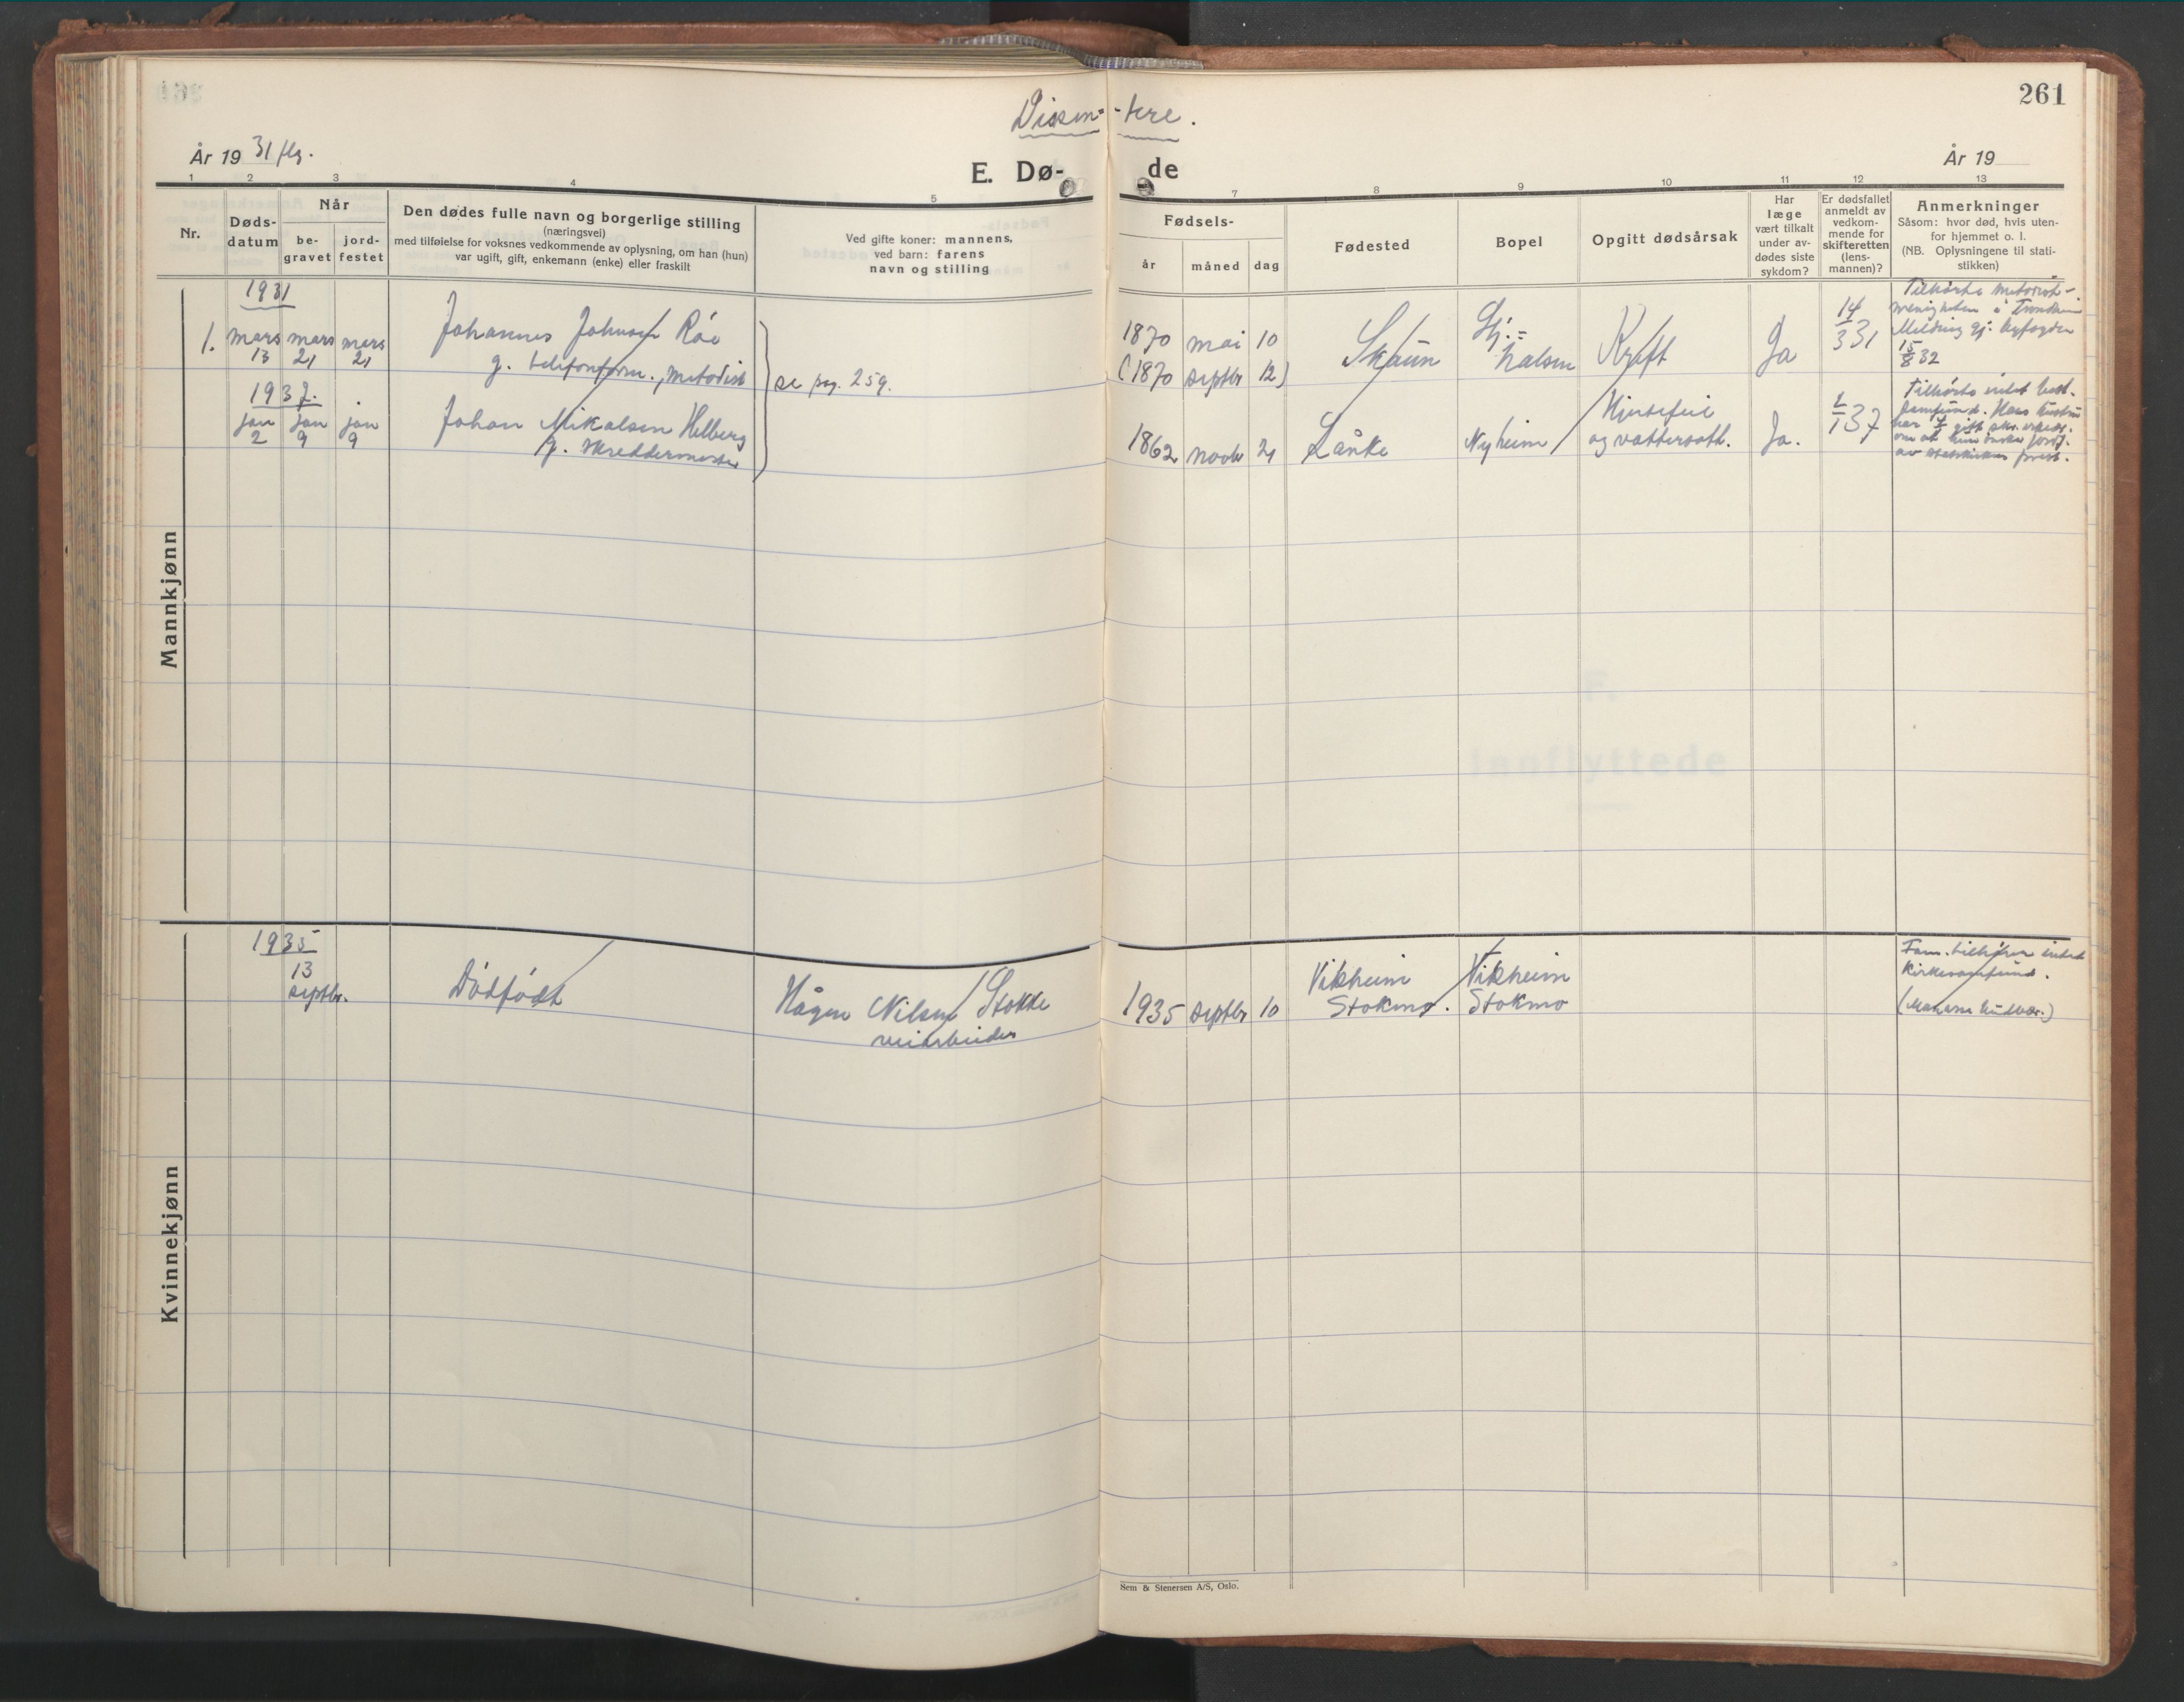 261
Dissen-tere.
År 19 31 flg.
E. Dø-de
År 19
1 2 3 4 5 7 8 9 10 11 12 13
Nr.
Døds-
datum
Når
be-
gravet
jord-
festet
Den dødes fulle navn og borgerlige stilling
(næringsvei)
med tilføielse for voksnes vedkommende av oplysning, om han (hun)
var ugift, gift, enkemann (enke) eller fraskilt
Ved gifte koner: mannens,
ved barn: farens
navn og stilling
Fødsels-
år måned dag
Fødested
Bopel
Opgitt dødsårsak
Har
læge
vært tilkalt
under av-
dødes siste
sykdom?
Er dødsfallet
anmeldt av
vedkom-
mende for
skifteretten
(lens-
mannen)?
Anmerkninger
Såsom: hvor død, hvis uten-
for hjemmet o. l.
(NB. Oplysningene til stati-
stikken)
Mannkjønn
1931
1. mars 13 mars 21 mars 21
Johannes Johnsen Røe
g. telefonform., metodist
se pag. 259.
1870 mai 10
(1870 septbr 12)
Skaun
Hj.=
halsen
Kreft
Ja
14/3 31
Tilhørte metodist-
menigheten i Trondheim
Melding gj. byfogden
15/8 32
1937.
jan 2 jan 9 jan 9
Johan Mikalsen Helberg
g. skreddermester
1862 novbr 21
Lånke
Nyheim
Hjertefeil
og vattersott.
Ja.
2/1 37
Tilhørte intet best.
samfund. Hans hustru
har gitt skr. erklær.
om at hun ønsker jordf.
av statskirkens prest.
Kvinnekjønn
1935
13
septbr.
Dødfødt
Hågen Nilsen Stokke
veiarbeider
1935 septbr 10
Vikheim
Stokmo.
Vikheim
Stokmo
Fam. tilhører intet
kirkesamfund.
Sem & Stenersen A/S, Oslo.
F.
Innflyttede